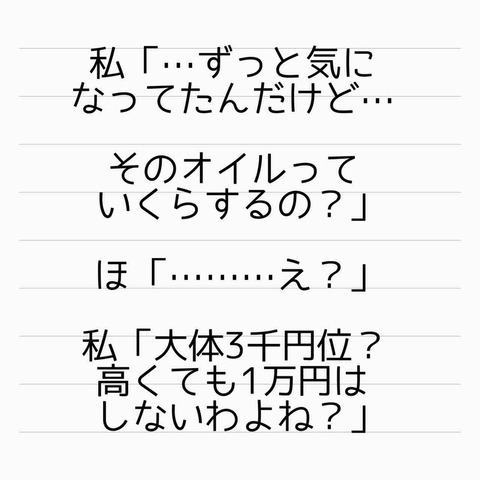 私「…ずっと気に
なってたんだけど…
そのオイルって
いくらするの？」
ほ「………え？」
私「大体3千円位？
高くても1万円は
しないわよね？」